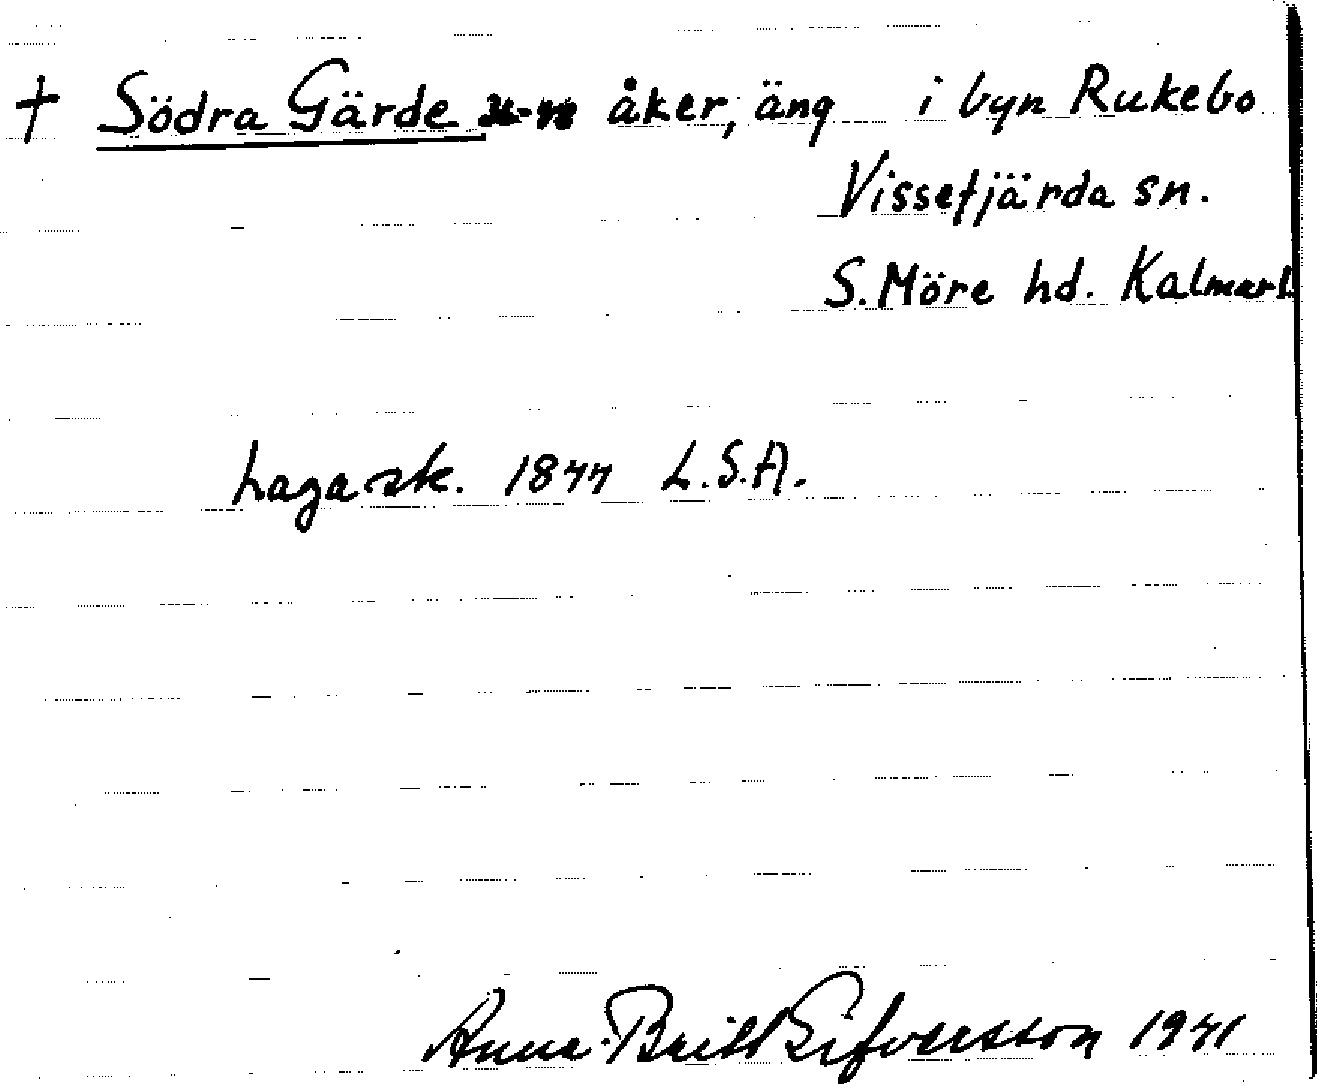 † Södra Gärde åker, äng i byn Rukebo
Vissefjärda sn.
S. Möre hd. Kalmar l
Laga sk. 1877 L.S.A.
Anna-Britt Sifversson 1971